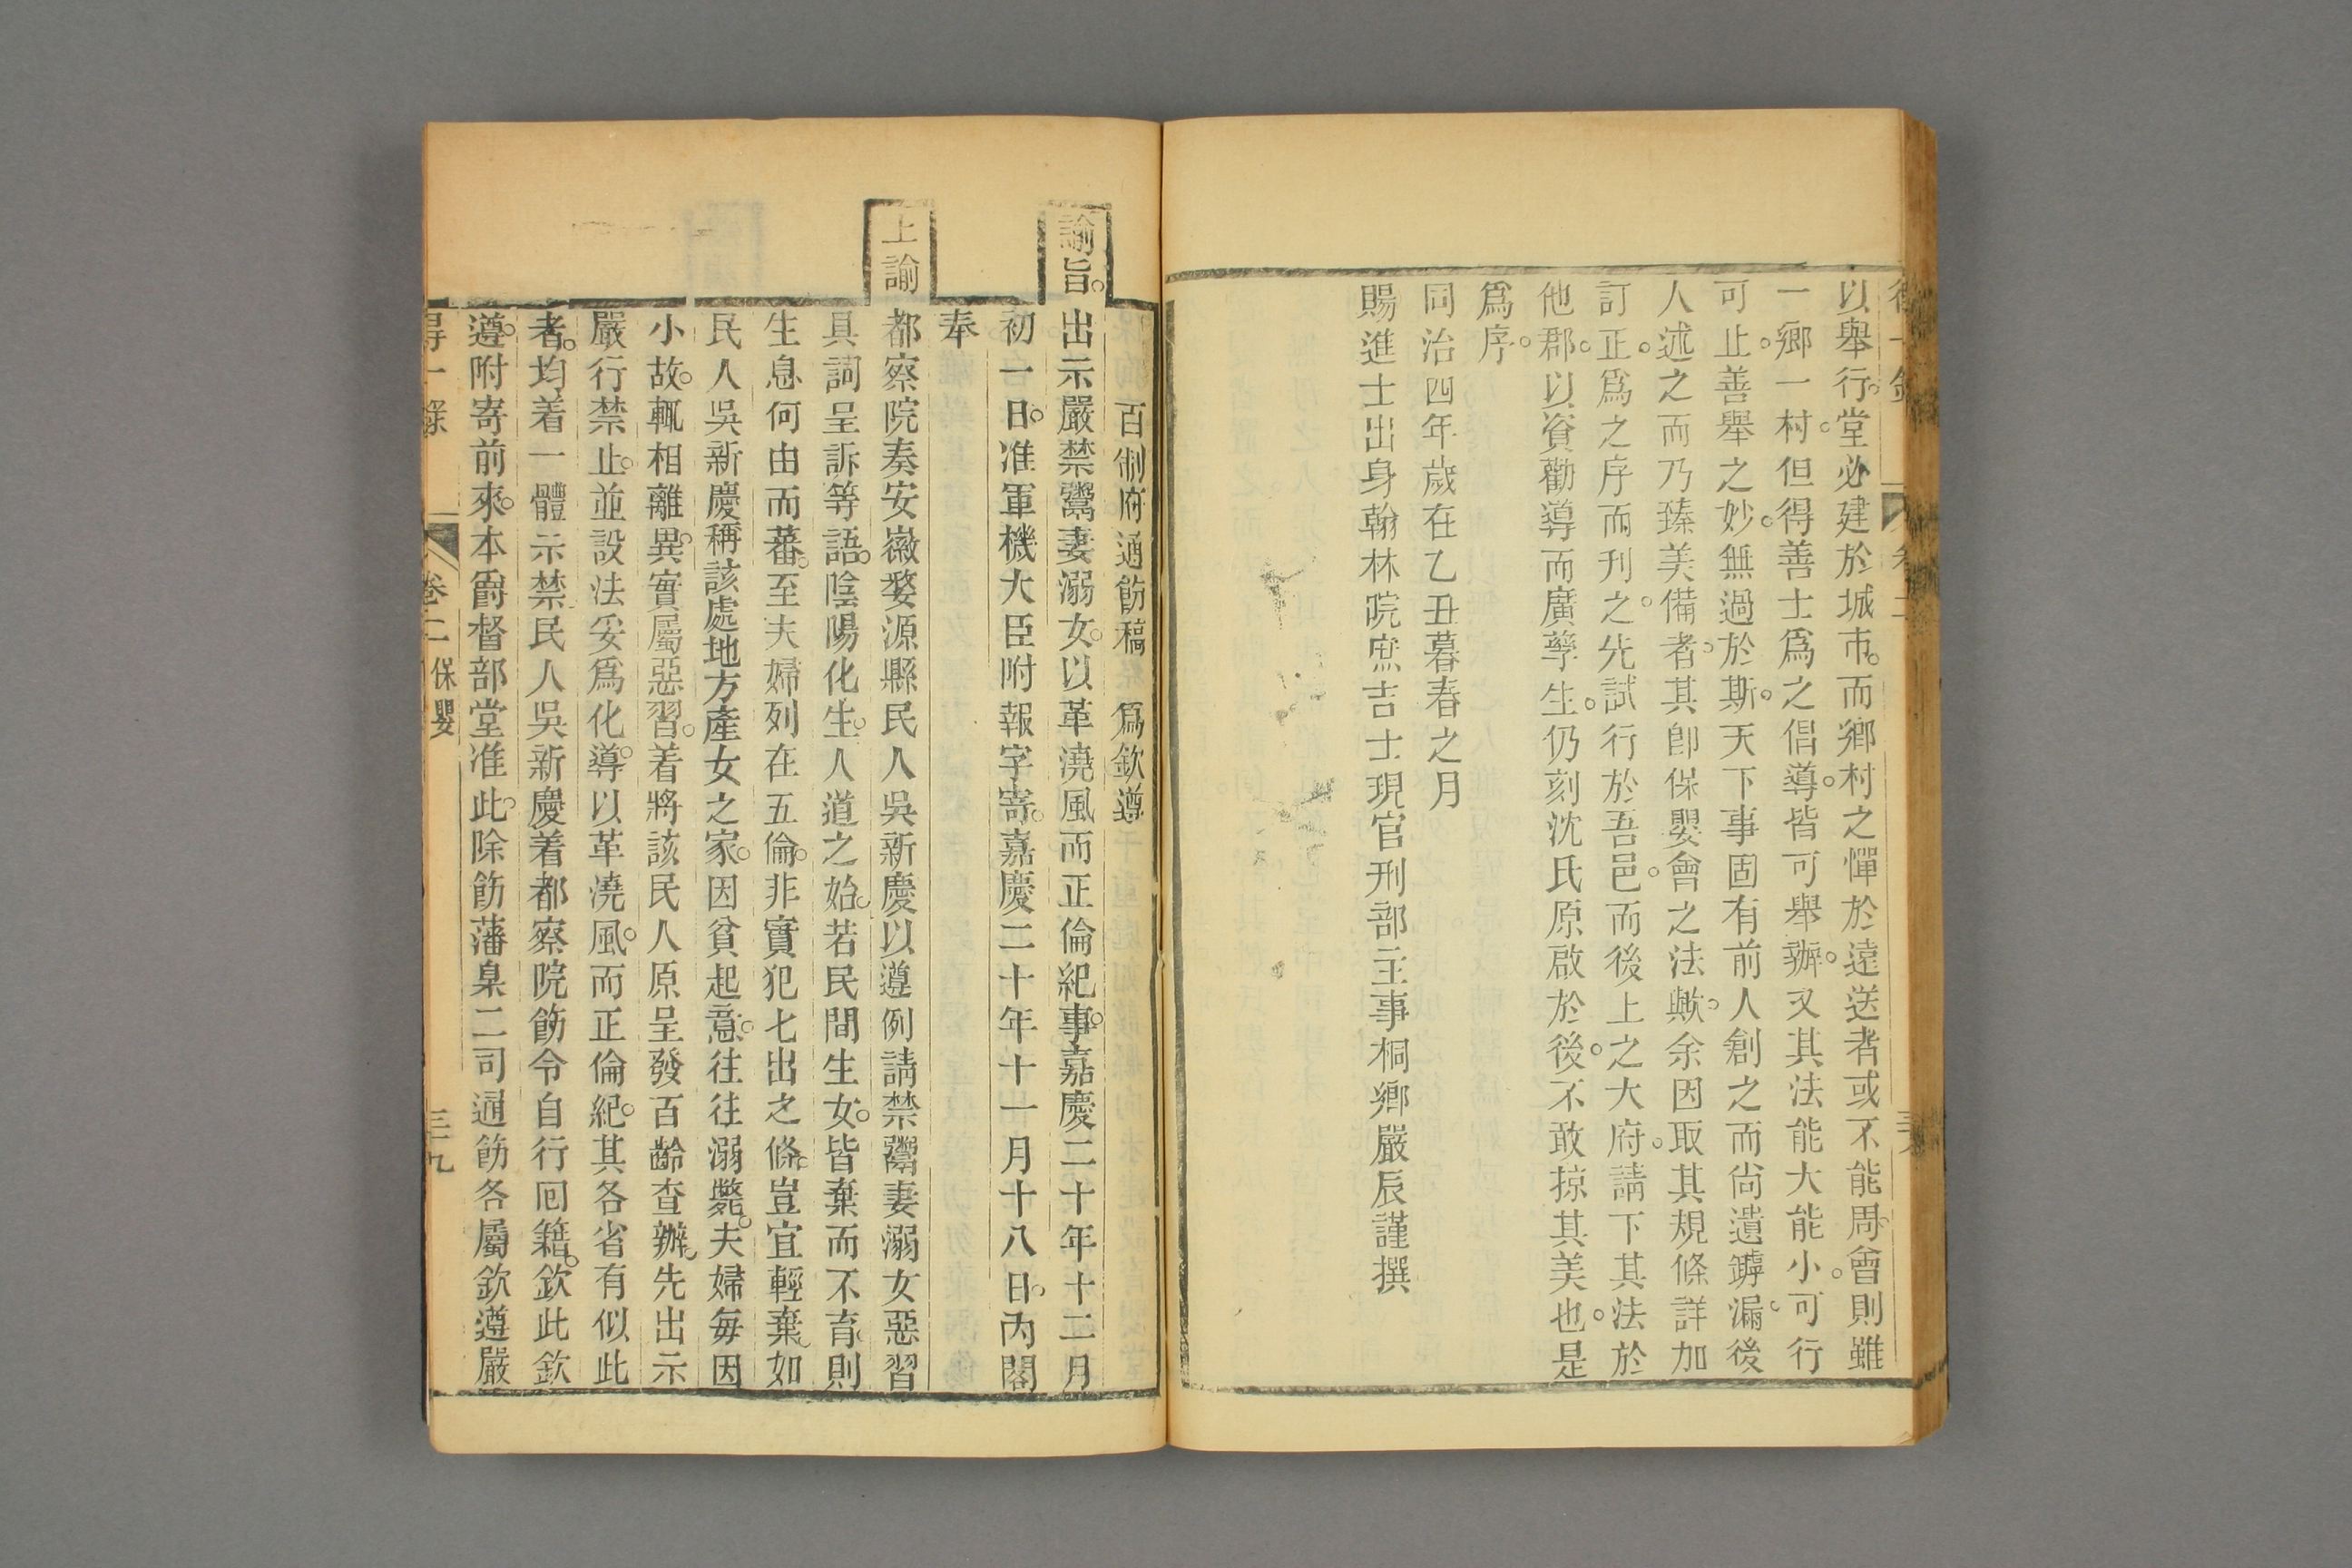 以舉行。堂必建於城市。而鄉村之憚於遠送者或不能周。會則雖
一鄉一村。但得善士爲之倡導。皆可舉辦。又其法能大能小。可行
可止。善舉之妙。無過於斯。天下事固有前人創之而尙遺鏬漏。後
人述之而乃臻美備者。其卽保嬰會之法歟。余因取其規條詳加
訂正。爲之序而刋之。先試行於吾邑。而後上之大府。請下其法於
他郡。以資勸導而廣孳生。仍刻沈氏原啟於後。不敢掠其美也。是
爲序。
同治四年歲在乙丑暮春之月
賜進士出身翰林院庶吉士現官刑部主事桐鄉嚴辰謹撰
百制府通飭稿　爲欽遵
諭旨。出示嚴禁鬻妻溺女。以革澆風而正倫紀事。嘉慶二十年十二月
初一日。准軍機大臣附報字寄。嘉慶二十年十一月十八日。內閣
奉
上諭都察院奏安徽婺源縣民人吳新慶以遵例請禁鬻妻溺女惡習
具詞呈訴等語。陰陽化生。人道之始。若民間生女。皆棄而不育。則
生息何由而蕃。至夫婦列在五倫。非實犯七出之條。豈宜輕棄。如
民人吳新慶稱該處地方產女之家。因貧起意。往往溺斃。夫婦每因
小故。輒相離異。實屬惡習。着將該民人原呈發百齡查辦。先出示
嚴行禁止。並設法妥爲化導。以革澆風。而正倫紀。其各省有似此
者。均着一體示禁。民人吳新慶着都察院飭令自行囘籍。欽此欽
遵。附寄前來。本爵督部堂准此。除飭藩臬二司通飭各屬欽遵嚴
得一錄　卷二　保嬰　三九